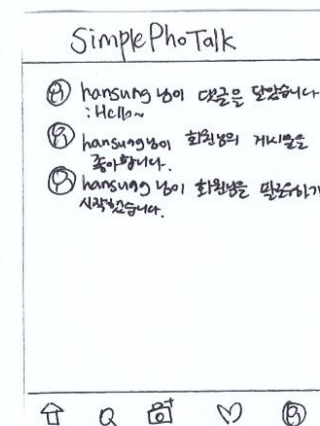 SimplePhoTalk
hansung님이 댓글을 달았습니다
: Hello~
hansung님이 회원님의 게시물을
좋아합니다.
hansung님이 회원님을 팔로우하기
시작했습니다.